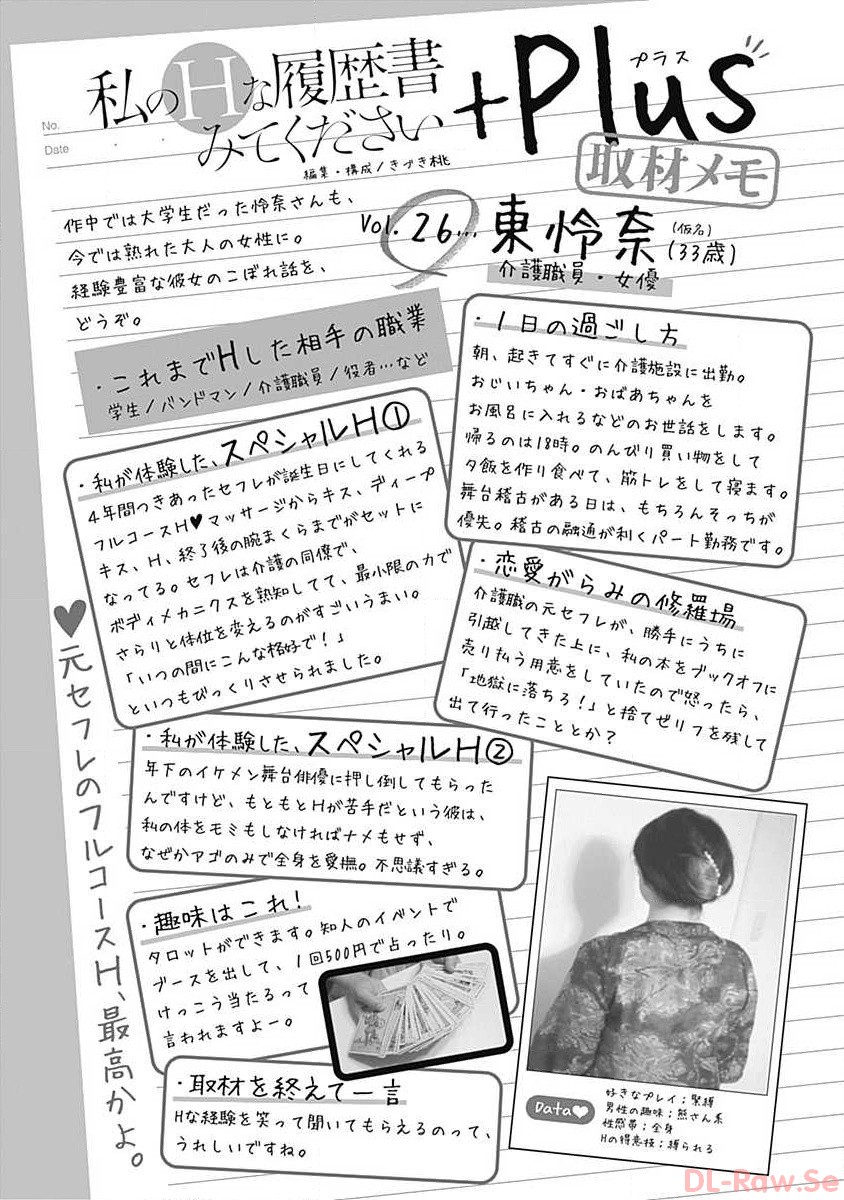 No.
Date
私のHな履歴書
みてください
+Plus
プラス
編集・構成/きづき桃
取材メモ
作中では大学生だった怜奈さんも、
今では熟れた大人の女性に。
経験豊富な彼女のこぼれ話を、
どうぞ。
Vol. 26…
東怜奈
(仮名)
(33歳)
介護職員・女優
・これまでHした相手の職業
学生/バンドマン/介護職員/役者…など
・1日の過ごし方
朝、起きてすぐに介護施設に出勤。
おじいちゃん・おばあちゃんを
お風呂に入れるなどのお世話をします。
帰るのは18時。のんびり買い物をして
夕飯を作り食べて、筋トレをして寝ます。
舞台稽古がある日は、もちろんそっちが
優先。稽古の融通が利くパート勤務です。
・私が体験した、スペシャルH①
4年間つきあったセフレが誕生日にしてくれる
フルコースH♥マッサージからキス、ディープ
キス、H、終了後の腕まくらまでがセットに
なってる。セフレは介護の同僚で、
ボディメカニクスを熟知してて、最小限の力で
さらりと体位を変えるのがすごいうまい。
「いつの間にこんな格好で!」
といつもびっくりさせられました。
・恋愛がらみの修羅場
介護職の元セフレが、勝手にうちに
引越してきた上に、私の本をブックオフに
売り払う用意をしていたので怒ったら、
「地獄に落ちろ!」と捨てゼリフを残して
出て行ったこととか?
・私が体験した、スペシャルH②
年下のイケメン舞台俳優に押し倒してもらった
んですけど、もともとHが苦手だという彼は、
私の体をモミもしなければナメもせず、
なぜかアゴのみで全身を愛撫。不思議すぎる。
・趣味はこれ!
タロットができます。知人のイベントで
ブースを出して、1回500円で占ったり。
けっこう当たるって
言われますよー。
・取材を終えて一言
Hな経験を笑って聞いてもらえるのって、
うれしいですね。
♥元セフレのフルコースH、最高かよ。
Data♥
好きなプレイ；緊縛
男性の趣味；熊さん系
性感帯；全身
Hの得意技；縛られる
DL-Raw.Se